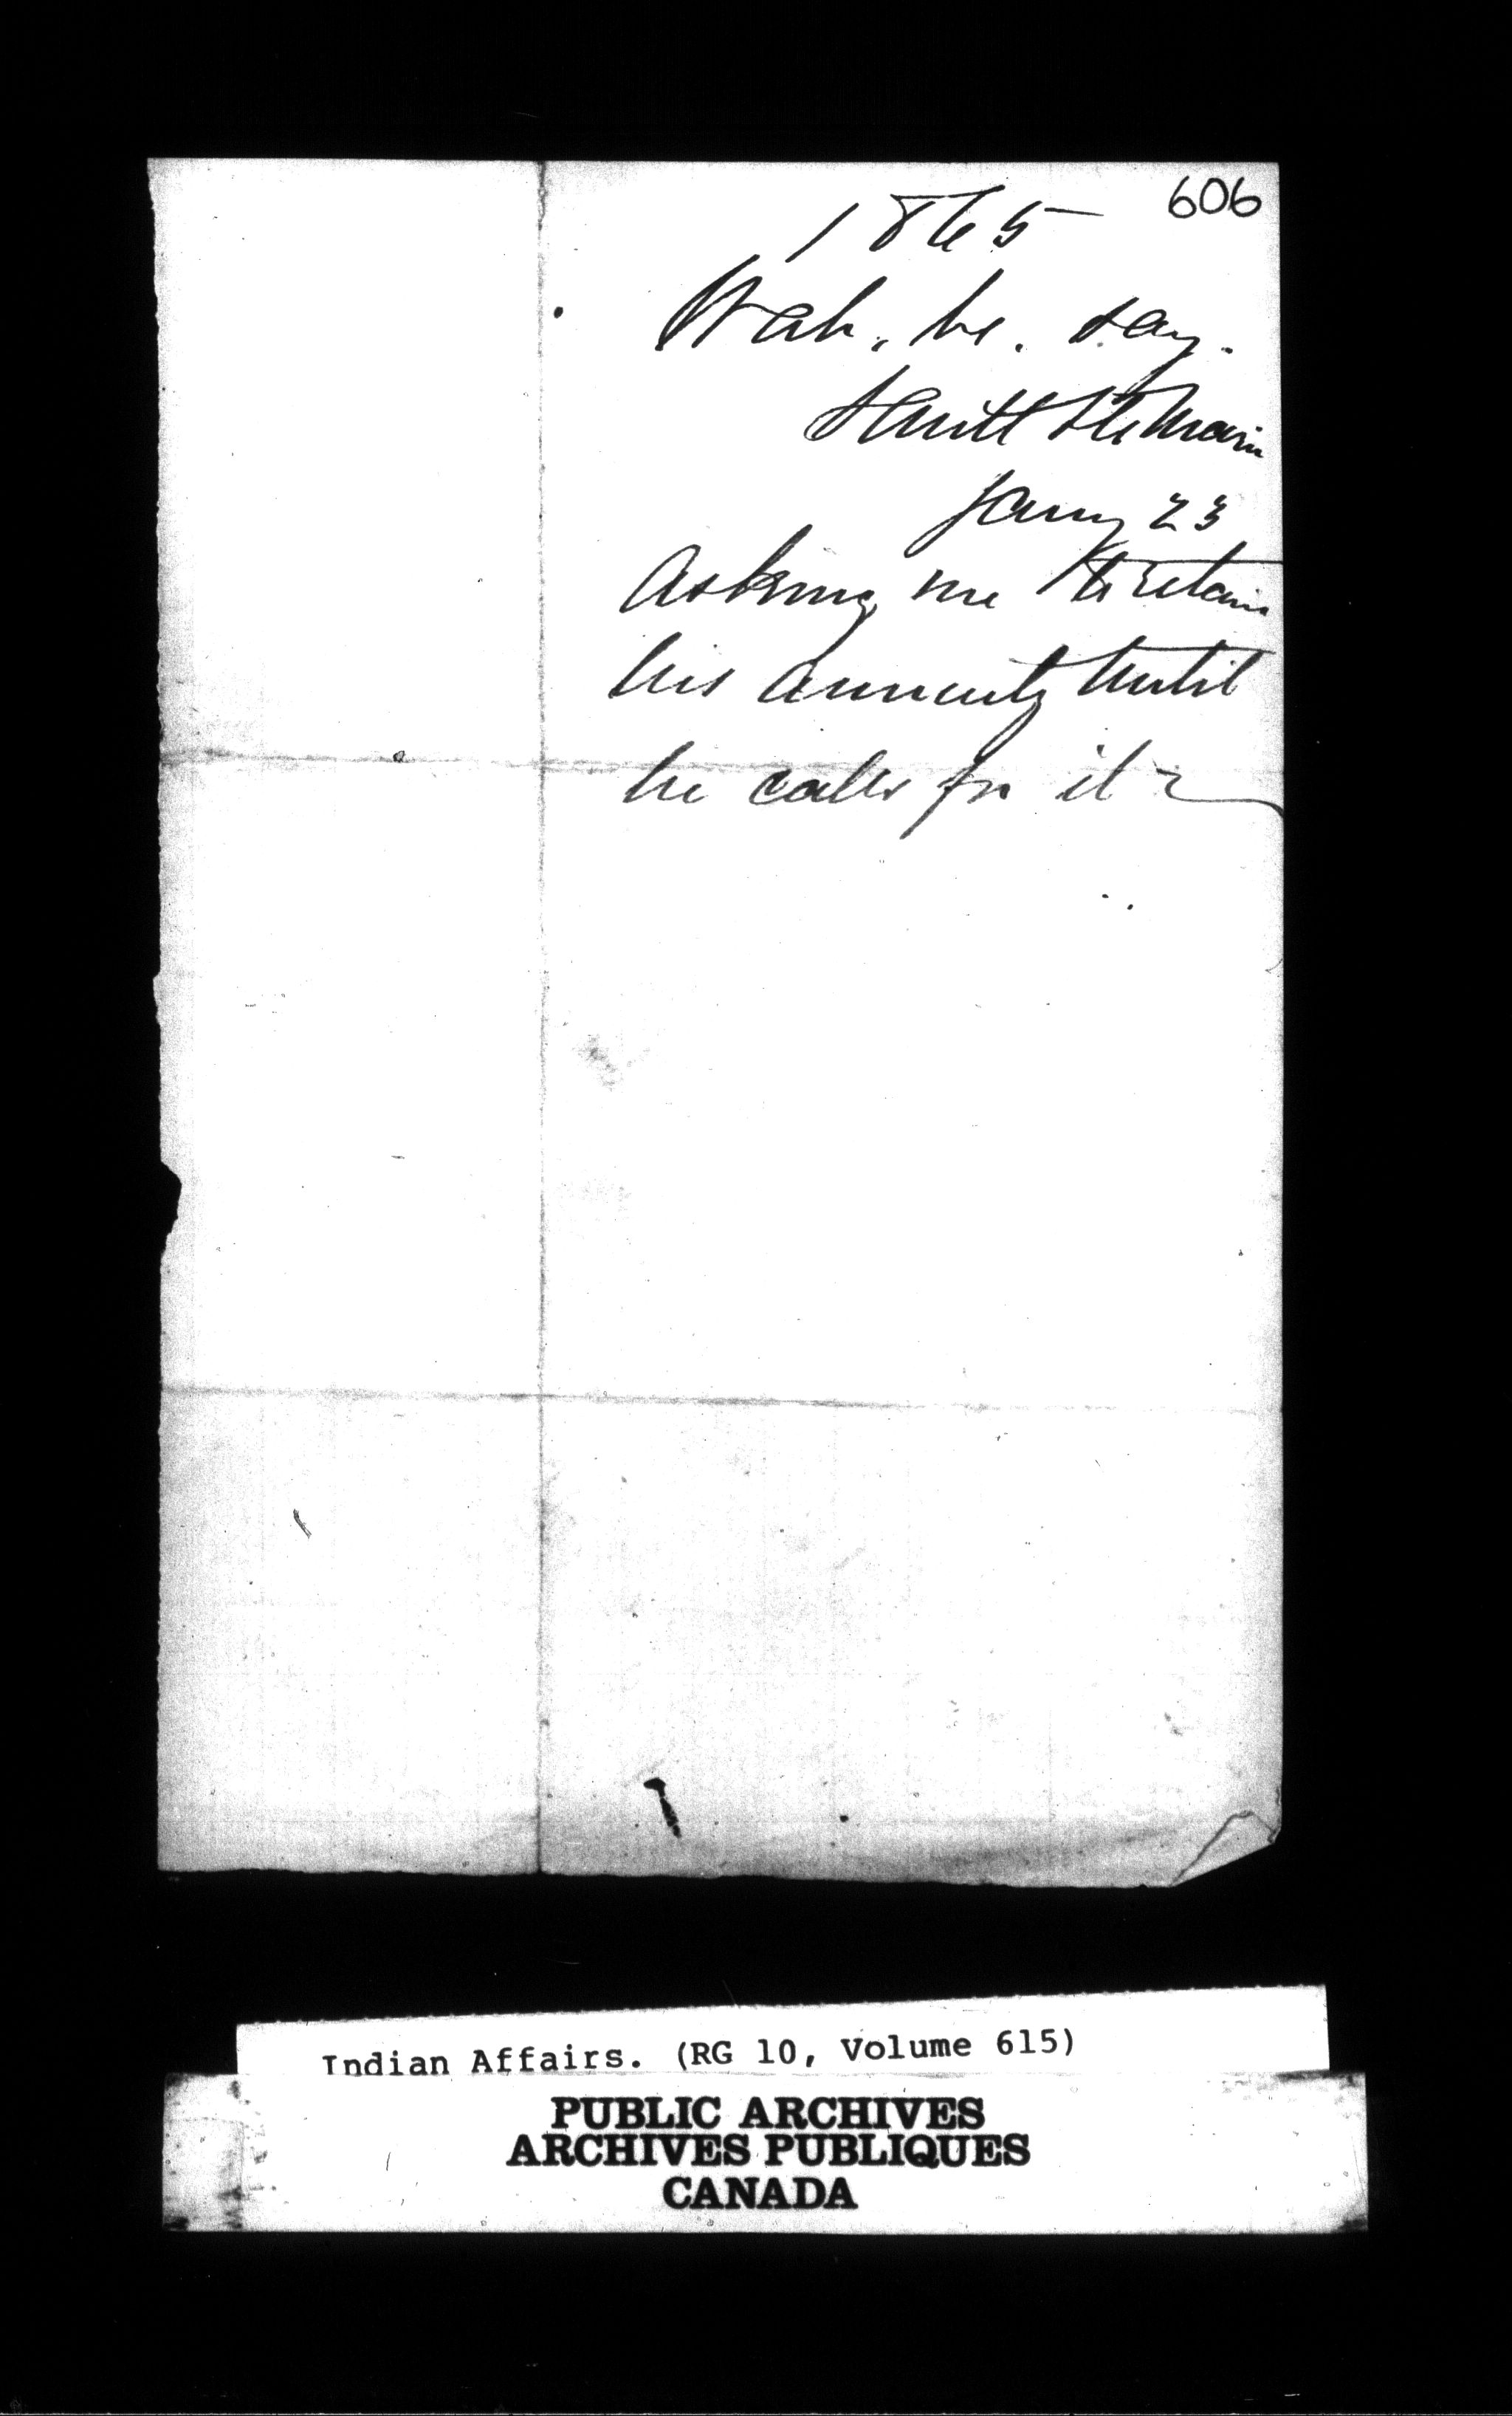 606
1865
Wah. be. say.
Sault Ste Marie
Jany 23
Asking me to retain
his annuity until
he calls for it
Indian Affairs. (RG 10, Volume 615)
PUBLIC ARCHIVES
ARCHIVES PUBLIQUES
CANADA